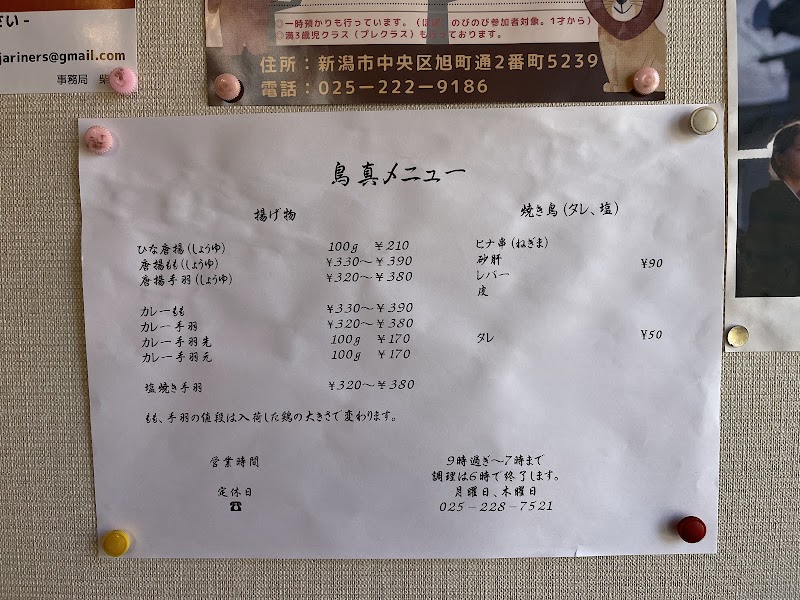 さい -
jariners@gmail.com
事務局 柴
◎一時預かりも行っています。(ほぼ のびのび参加者対象。1才から)
◎満3歳児クラス(プレクラス)も行っております。
住所：新潟市中央区旭町通2番町5239
電話：025ー222ー9186
鳥真メニュー
揚げ物
ひな唐揚(しょうゆ) 100g ￥210
唐揚もも(しょうゆ) ￥330～￥390
唐揚手羽(しょうゆ) ￥320～￥380
カレーもも ￥330～￥390
カレー手羽 ￥320～￥380
カレー手羽先 100g ￥170
カレー手羽元 100g ￥170
塩焼き手羽 ￥320～￥380
焼き鳥(タレ、塩)
ヒナ串(ねぎま)
砂肝
レバー
皮
￥90
タレ ￥50
もも、手羽の値段は入荷した鶏の大きさで変わります。
営業時間 9時過ぎ～7時まで
調理は6時で終了します。
定休日 月曜日、木曜日
☎ 025-228-7521